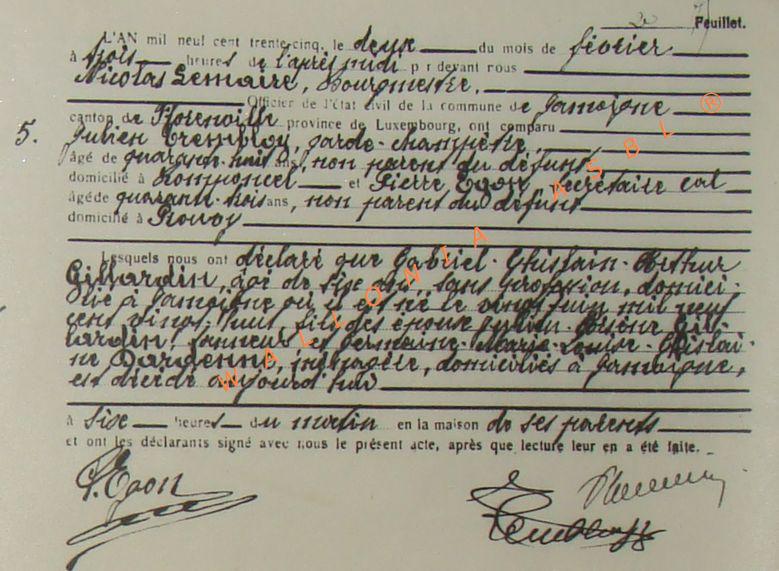 Feuillet.
L'AN mil neuf cent trente-cinq, le deux du mois de février
à trois heures de l'après midi par devant nous
Nicolas Lemaire, Bourgmestre,
Officier de l'état civil de la commune de Jamoigne
canton de Florenville province de Luxembourg, ont comparu
5. Julien Trembloy, garde-champêtre,
âgé de quarante-huit ans, non parent du défunt
domicilié à Romponcel et Pierre Egon, secrétaire cal
âgé de quarante-trois ans, non parent du défunt
domicilié à Prouvoy
Lesquels nous ont déclaré que Gabriel-Ghislain-Arthur
Gillardin, âgé de six ans, sans profession, domici-
lié à Jamoigne où il est né le vingt juin mil neuf
cent vingt-huit, fils des époux Julien-Gil-
lardin, et Germaine-Marie-Louise-Ghislai-
ne Dardenne, ménagère, domiciliés à Jamoigne,
est décédé aujourd'hui
à six heures du matin en la maison de ses parents
et ont les déclarants signé avec nous le présent acte, après que lecture leur en a été faite.
P. Egon
WALLONIA ASBL ®